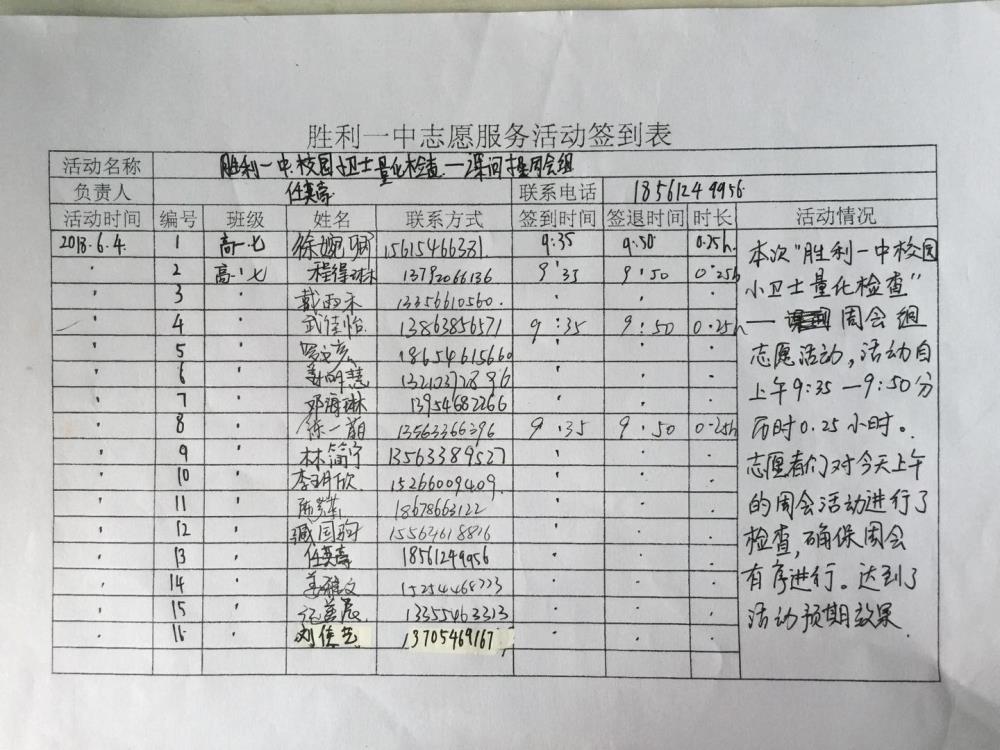 胜利一中志愿服务活动签到表
活动名称 胜利一中校园小卫士量化检查——课间操周会组
负责人 任英豪 联系电话 18561249956
活动时间 编号 班级 姓名 联系方式 签到时间 签退时间 时长 活动情况
2018.6.4. 1 高一.七 徐婉 15615466381 9:35 9:50 0.25h
2 高一七 程得琳 13792066136 9:35 9:50 0.25h
3 戴雨禾 13356610560
4 武佳怡 13863856571 9:35 9:50 0.25h
5 18654615660
6 姜明慧
7 邓海琳 13954682266
8 徐一萌 13563366396 9:35 9:50 0.25h
9 林简宁 13563389527
10 李玥欣 15266009409
11 18678663122
12 臧国驹
13 任英豪 18561249956
14 姜雅文
15 13355463313
16 刘佳艺 13705469167
本次“胜利一中校园
小卫士量化检查”
——周会组
志愿活动,活动自
上午9:35—9:50分
历时0.25小时。
志愿者们对今天上午
的周会活动进行了
检查,确保周会
有序进行。达到了
活动预期效果